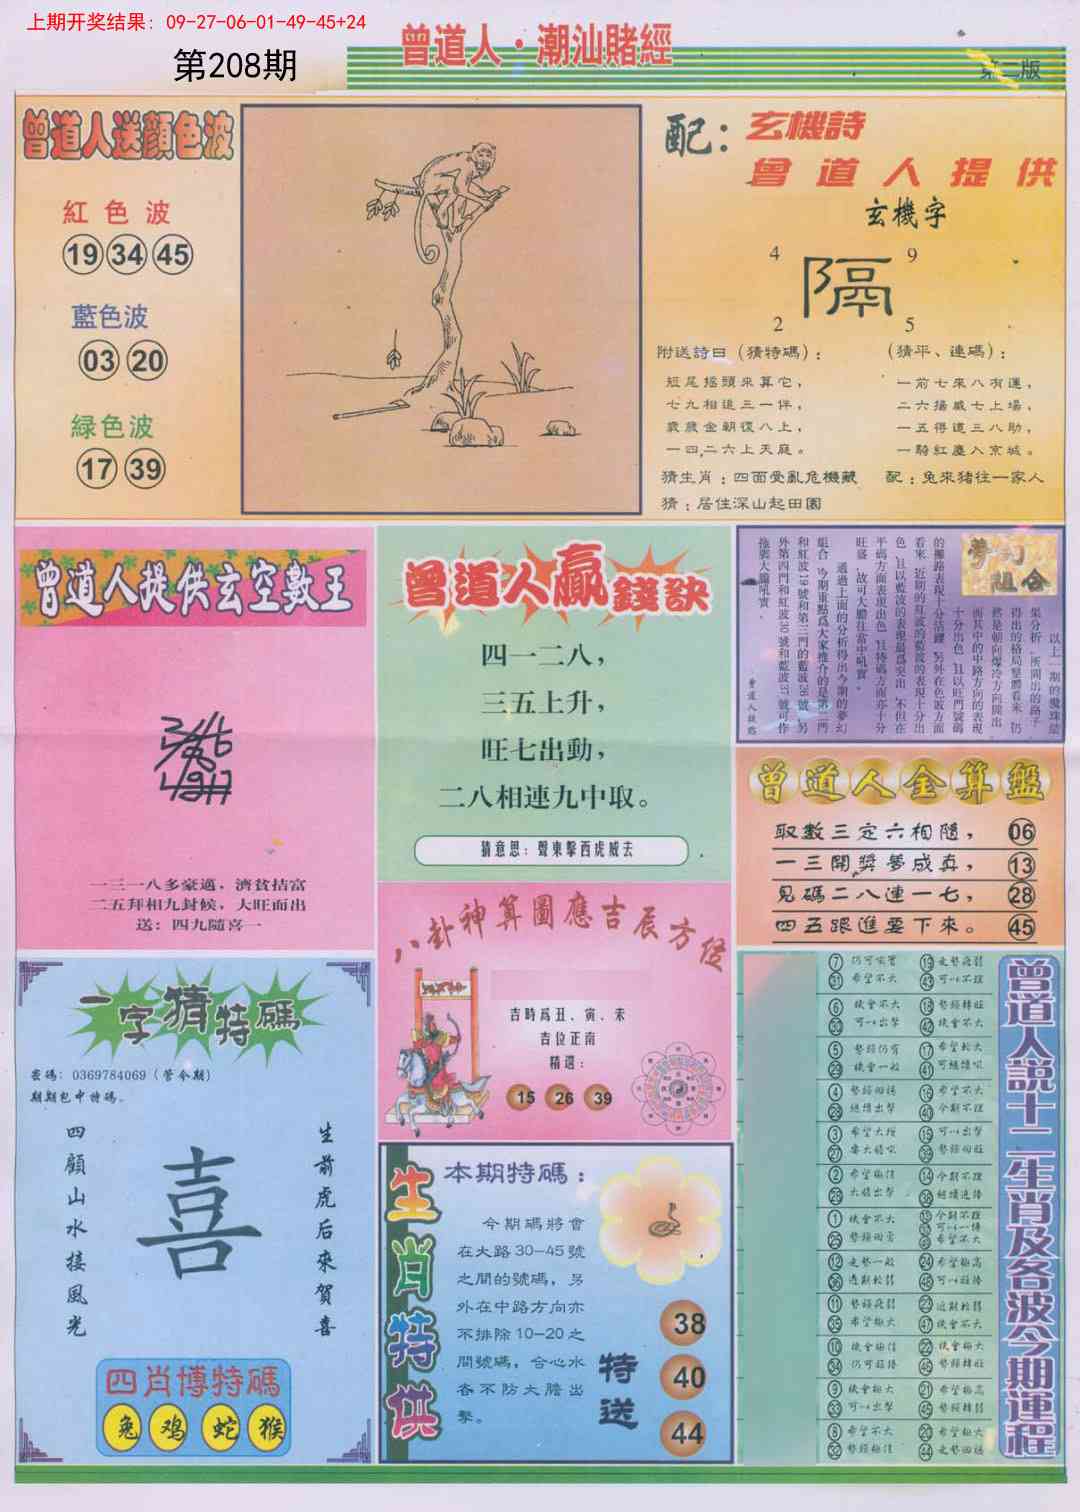 上期开奖结果：09-27-06-01-49-45+24
第208期
曾道人·潮汕賭經
第二版
曾道人送顏色波
紅色波
19 34 45
藍色波
03 20
緑色波
17 39
配：玄機詩
曾道人提供
玄機字
4 9
隔
2 5
附送詩曰（猜特碼）：
短尾摇頭來算它，
七九相追三一伴，
歲歲金朝復八上，
一四,二六上天庭。
（猜平、連碼）：
一前七來八有運，
二六揚威七上場，
一五得道三八助，
一騎紅塵入京城。
猜生肖：四面受亂危機藏
配：兔來猪往一家人
猜：居住深山起田園
曾道人提供玄空數王
一三一八多豪邁，濟貧拮富
二五拜相九封候，大旺而出
送：四九隨喜一
曾道人贏錢訣
四一二八，
三五上升，
旺七出動，
二八相連九中取。
猜意思：聲東擊西虎威去
夢幻組合
以上一期的攪珠結
集分析，所開出的路子
得出的格局整體看來，仍
然是朝向爆冷方向開出，
而其中的中路方向的表現
十分出色，且以旺門號碼
的攤路表現十分活躍，另外在色波方面
看來，近期的紅波的藍波的表現十分出
色，且以藍波的表現最爲突出，不但在
平碼方面表現出色，且特碼方面亦十分
旺盛，故可大膽往當中吼實。
通過上面的分析得出今期的夢幻
組合，今期重點爲大家推介的是第二門
和紅波19號和第三門的藍波26號，另
外第四門和紅波30號和藍波37號可作
拖脚大膽吼實。
曾道人金算盤
取數三定六相隨， 06
一三開獎夢成真， 13
見碼二八連一七， 28
四五跟進要下來。 45
八卦神算圖應吉辰方位
吉時爲丑、寅、未
吉位正南
精選：
15 26 39
一字猜特碼
密碼：0369784069（管令期）
期期包中特碼。
四顧山水接風光
喜
生前虎后來賀喜
四肖博特碼
兔 鸡 蛇 猴
生肖特供
本期特碼：
今期碼將會
在大路30-45號
之間的號碼，另
外在中路方向亦
不排除10-20之
間號碼，合心水
者不防大膽出
擊。
特送
38
40
44
曾道人說十二生肖及各波今期運程
7 31 仍可吼實 希望不大
19 43 走勢疲弱 可以不理
6 30 機會不大 可以出擊
18 42 勢頭轉旺 機會不大
5 29 勢頭仍有 機會一般
17 41 希望較大 可繼續吼
4 28 勢頭回穩 繼續出擊
16 40 希望不大 今期不理
3 27 希望大增 要大膽吼
15 39 可以出擊 勢頭回旺
2 26 希望極佳 大膽出擊
14 38 今期不理 繼續追捧
1 25 機會不大 勢頭回勇
13 37 49 今期不理 可以一博 希望不大
12 36 走勢一般 近期較弱
24 48 希望極高 可以追捧
11 35 勢頭疲弱 希望極大
23 47 近期較弱 機會不大
10 34 機會極佳 仍可追捧
22 46 機會極大 勢頭轉旺
9 33 機會極大 可以出擊
21 45 希望極高 勢頭轉弱
8 32 希望不大 勢頭極佳
20 44 希望極大 走勢回穩